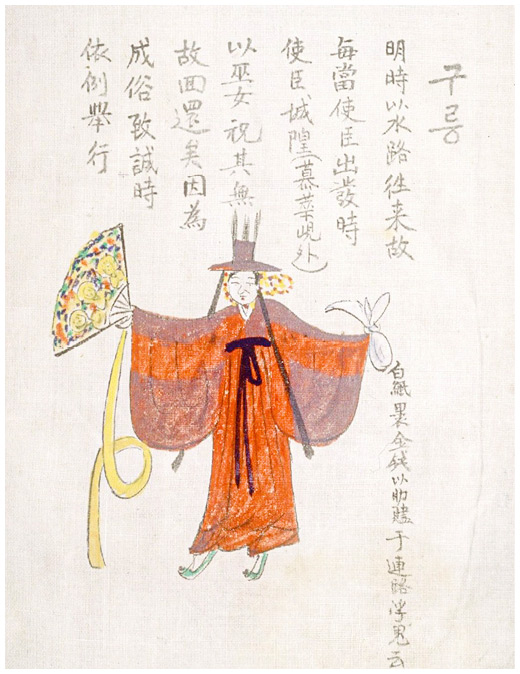 구릉
明時以水路徃来故
每當使臣出發時
使臣城隍(慕華峴外)
以巫女祝其無
故回還矣因為
成俗致誠時
依例舉行
白紙裹金錢以助贐于連路浮鬼云